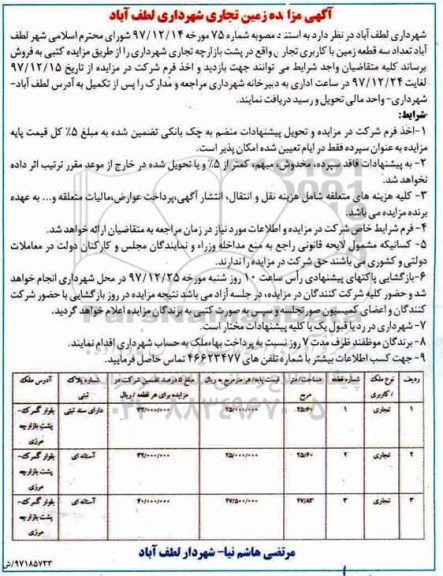 آگهی مزایده زمین تجاری شهرداری لطف آباد
شهرداری لطف آباد در نظر دارد به استناد مصوبه شماره ۷۵ مورخه ۹۷/۱۲/۱۴ شورای محترم اسلامی شهر لطف
آباد تعداد سه قطعه زمین با کاربری تجاری واقع در پشت بازارچه تجاری شهرداری را از طریق مزایده کتبی به فروش
برساند کلیه متقاضیان واجد شرایط می توانند جهت بازدید و اخذ فرم شرکت در مزایده از تاریخ ۹۷/۱۲/۱۵
لغایت ۹۷/۱۲/۲۴ در ساعت اداری به دبیرخانه شهرداری مراجعه و مدارک را پس از تکمیل به آدرس لطف آباد-
شهرداری- واحد مالی تحویل و رسید دریافت نمایند.
شرایط:
۱-اخذ فرم شرکت در مزایده و تحویل پیشنهادات منضم به چک بانکی تضمین شده به مبلغ ۵٪ کل قیمت پایه
مزایده به عنوان سپرده فقط در ایام تعیین شده امکان پذیر است.
۲- به پیشنهادات فاقد سپرده، مخدوش، مبهم، کمتر از ۵٪ و یا تحویل شده در خارج از موعد مقرر ترتیب اثر داده
نخواهد شد.
۳- کلیه هزینه های متعلقه شامل هزینه نقل و انتقال، انتشار آگهی،پرداخت عوارض،مالیات متعلقه و... به عهده
برنده مزایده می باشد.
۴- فرم شرایط خاص شرکت در مزایده و اطلاعات مورد نیاز در زمان مراجعه به متقاضیان ارائه خواهد شد.
۵- کسانیکه مشمول لایحه قانونی راجع به منع مداخله وزراء و نمایندگان مجلس و کارکنان دولت در معاملات
دولتی و کشوری می باشند حق شرکت در مزایده را ندارند.
۶-بازگشایی پاکتهای پیشنهادی رأس ساعت ۱۰ روز شنبه مورخه ۹۷/۱۲/۲۵ در محل شهرداری انجام خواهد
شد و حضور کلیه شرکت کنندگان در مزایده، در جلسه آزاد می باشد نتیجه مزایده در روز بازگشایی با حضور شرکت
کنندگان و اعضای کمیسیون صورتجلسه و سپس به صورت کتبی به برندگان مزایده اعلام خواهد گردید.
۷- شهرداری در رد یا قبول یک یا کلیه پیشنهادات مختار است.
۸- برندگان موظفند ظرف مدت ۷ روز نسبت به پرداخت بهاء ملک به حساب شهرداری اقدام نمایند.
۹- جهت کسب اطلاعات بیشتر با شماره تلفن های ۴۶۶۲۳۴۷۷ تماس حاصل فرمایید.
ردیف نوع ملک /کاربری شماره قطعه مساحت/متر مربع قیمت پایه/ هر متر مربع به ریال مبلغ ۵ درصد تضمین شرکت در مزایده برای هر قطعه / ریال شماره پلاک ثبتی آدرس ملک
۱ تجاری ۱ ۲۵/۶۰ ۲۵/۰۰۰/۰۰۰ ۳۲/۰۰۰/۰۰۰ دارای سند ثبتی بلوار گمرک- پشت بازارچه مرزی
۲ تجاری ۲ ۲۵/۶۰ ۲۵/۰۰۰/۰۰۰ ۳۲/۰۰۰/۰۰۰ آستانه ای بلوار گمرک- پشت بازارچه مرزی
۳ تجاری ۳ ۲۷/۸۳ ۲۷/۵۰۰/۰۰۰ ۴۰/۰۰۰/۰۰۰ آستانه ای بلوار گمرک- پشت بازارچه مرزی
مرتضی هاشم نیا- شهردار لطف آباد
۹۷۱۸۵۷۲۳/ش
ParsNamadData
۰۲۱-۸۸۳۴۹۶۷۰-۵